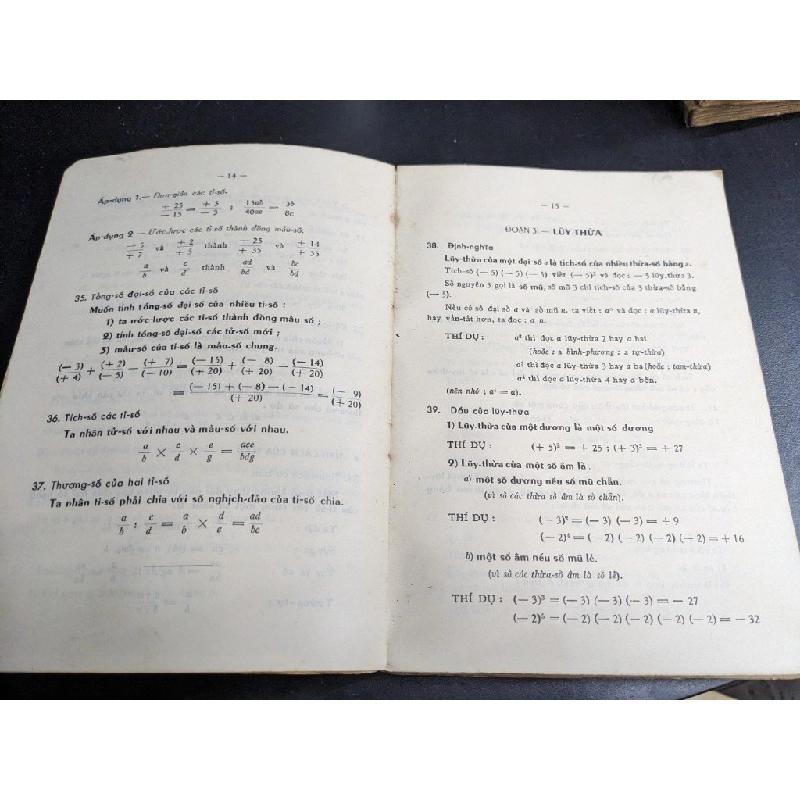 — 14 —
Áp-dụng 1.— Đơn-giản các tỉ-số.
+ 25 / — 15 = + 5 / — 3 ; 15ab / 40ac = 3b / 8c
Áp-dụng 2 — Ước-lược các tỉ-số thành đồng mẫu-số.
và thành — 25 / + 35 và + 14 / + 35
a / b và c / d thành ad / bd và bc / bd
35. Tổng-số đại-số của các tỉ-số
Muốn tính tổng-số đại số của nhiều tỉ-số :
1) ta ước lược các tỉ-số thành đồng mẫu số ;
2) tính tổng-số đại-số các tử-số mới ;
3) mẫu-số của tỉ-số là mẫu-số chung.
(— 3) / (+ 4) + (+ 2) / (— 5) — (+ 7) / (— 10) = (— 15) / (+ 20) + (— 8) / (+ 20) — (— 14) / (+ 20)
= (— 15) + (— 8) — (— 14) / (+ 20) = (— 9) / (+ 20)
36. Tích-số các tỉ-số
Ta nhân tử-số với nhau và mẫu-số với nhau.
a / b × c / d × e / g = ace / bdg
37. Thương-số của hai tỉ-số
Ta nhân tỉ-số phải chia với số nghịch-đảo của tỉ-số chia.
a / b : c / d = a / b × d / c = ad / bc
— 15 —
ĐOẠN 3. — LŨY THỪA
38. Định-nghĩa
Lũy-thừa của một đại số a là tích-số của nhiều thừa-số bằng a.
Tích-số (— 5) (— 5) (— 5) viết (— 5)³ và đọc : — 5 lũy-thừa 3.
Số nguyên 3 gọi là số mũ, số mũ 3 chỉ tích-số của 3 thừa-số bằng
(— 5).
Nếu có số đại số a và số mũ n, ta viết : aⁿ và đọc : a lũy-thừa n,
hay, vắn-tắt hơn, ta đọc : a n.
THÍ DỤ : a² thì đọc a lũy-thừa 2 hay a hai
(hoặc : a bình-phương ; a tự-thừa)
a³ thì đọc a lũy-thừa 3 hay a ba (hoặc : tam-thừa)
a⁴ thì đọc a lũy-thừa 4 hay a bốn.
(nên nhớ ; a¹ = a).
39. Dấu của lũy-thừa
1) Lũy-thừa của một dương là một số dương
THÍ DỤ : (+ 5)² = + 25 ; (+ 3)³ = + 27
2) Lũy-thừa của một số âm là .
a) một số dương nếu số mũ chẵn.
(vì số các thừa số âm là số chẵn).
THÍ DỤ : (— 3)² = (— 3) (— 3) = + 9
(— 2)⁴ = (— 2) (— 2) (— 2) (— 2) = + 16
b) một số âm nếu số mũ lẻ.
(vì số các thừa-số âm là số lẻ).
THÍ DỤ : (— 3)³ = (— 3) (— 3) (— 3) = — 27
(— 2)⁵ = (— 2) (— 2) (— 2) (— 2) (— 2) = — 32